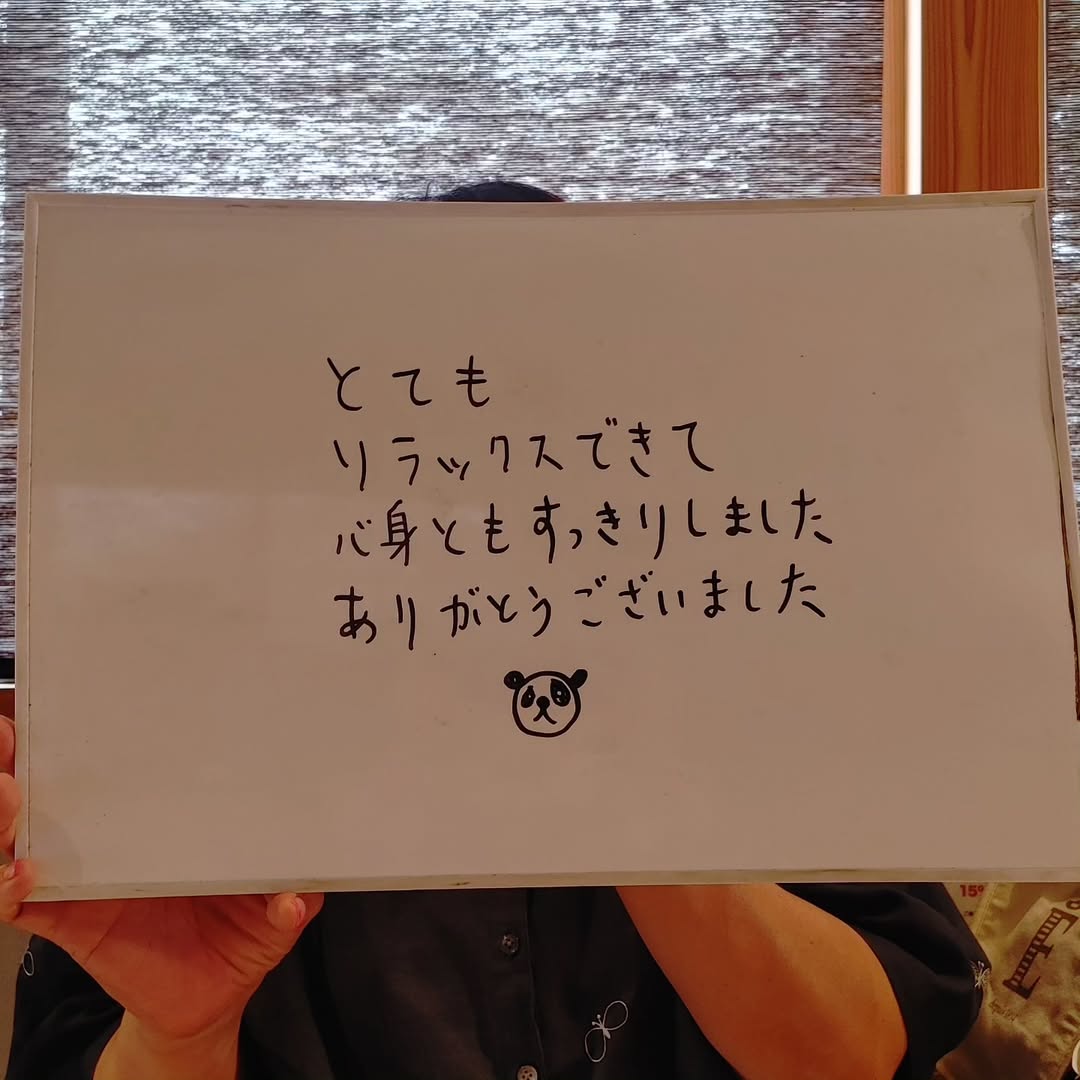 とても
リラックスできて
心身ともすっきりしました
ありがとうございました
15°